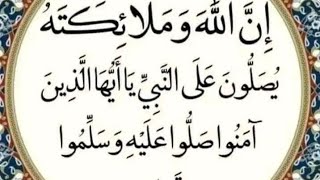 إِنَّ اللَّهَ وَمَلَائِكَتَهُ
يُصَلُّونَ عَلَى النَّبِيِّ يَا أَيُّهَا الَّذِينَ
آمَنُوا صَلُّوا عَلَيْهِ وَسَلِّمُوا